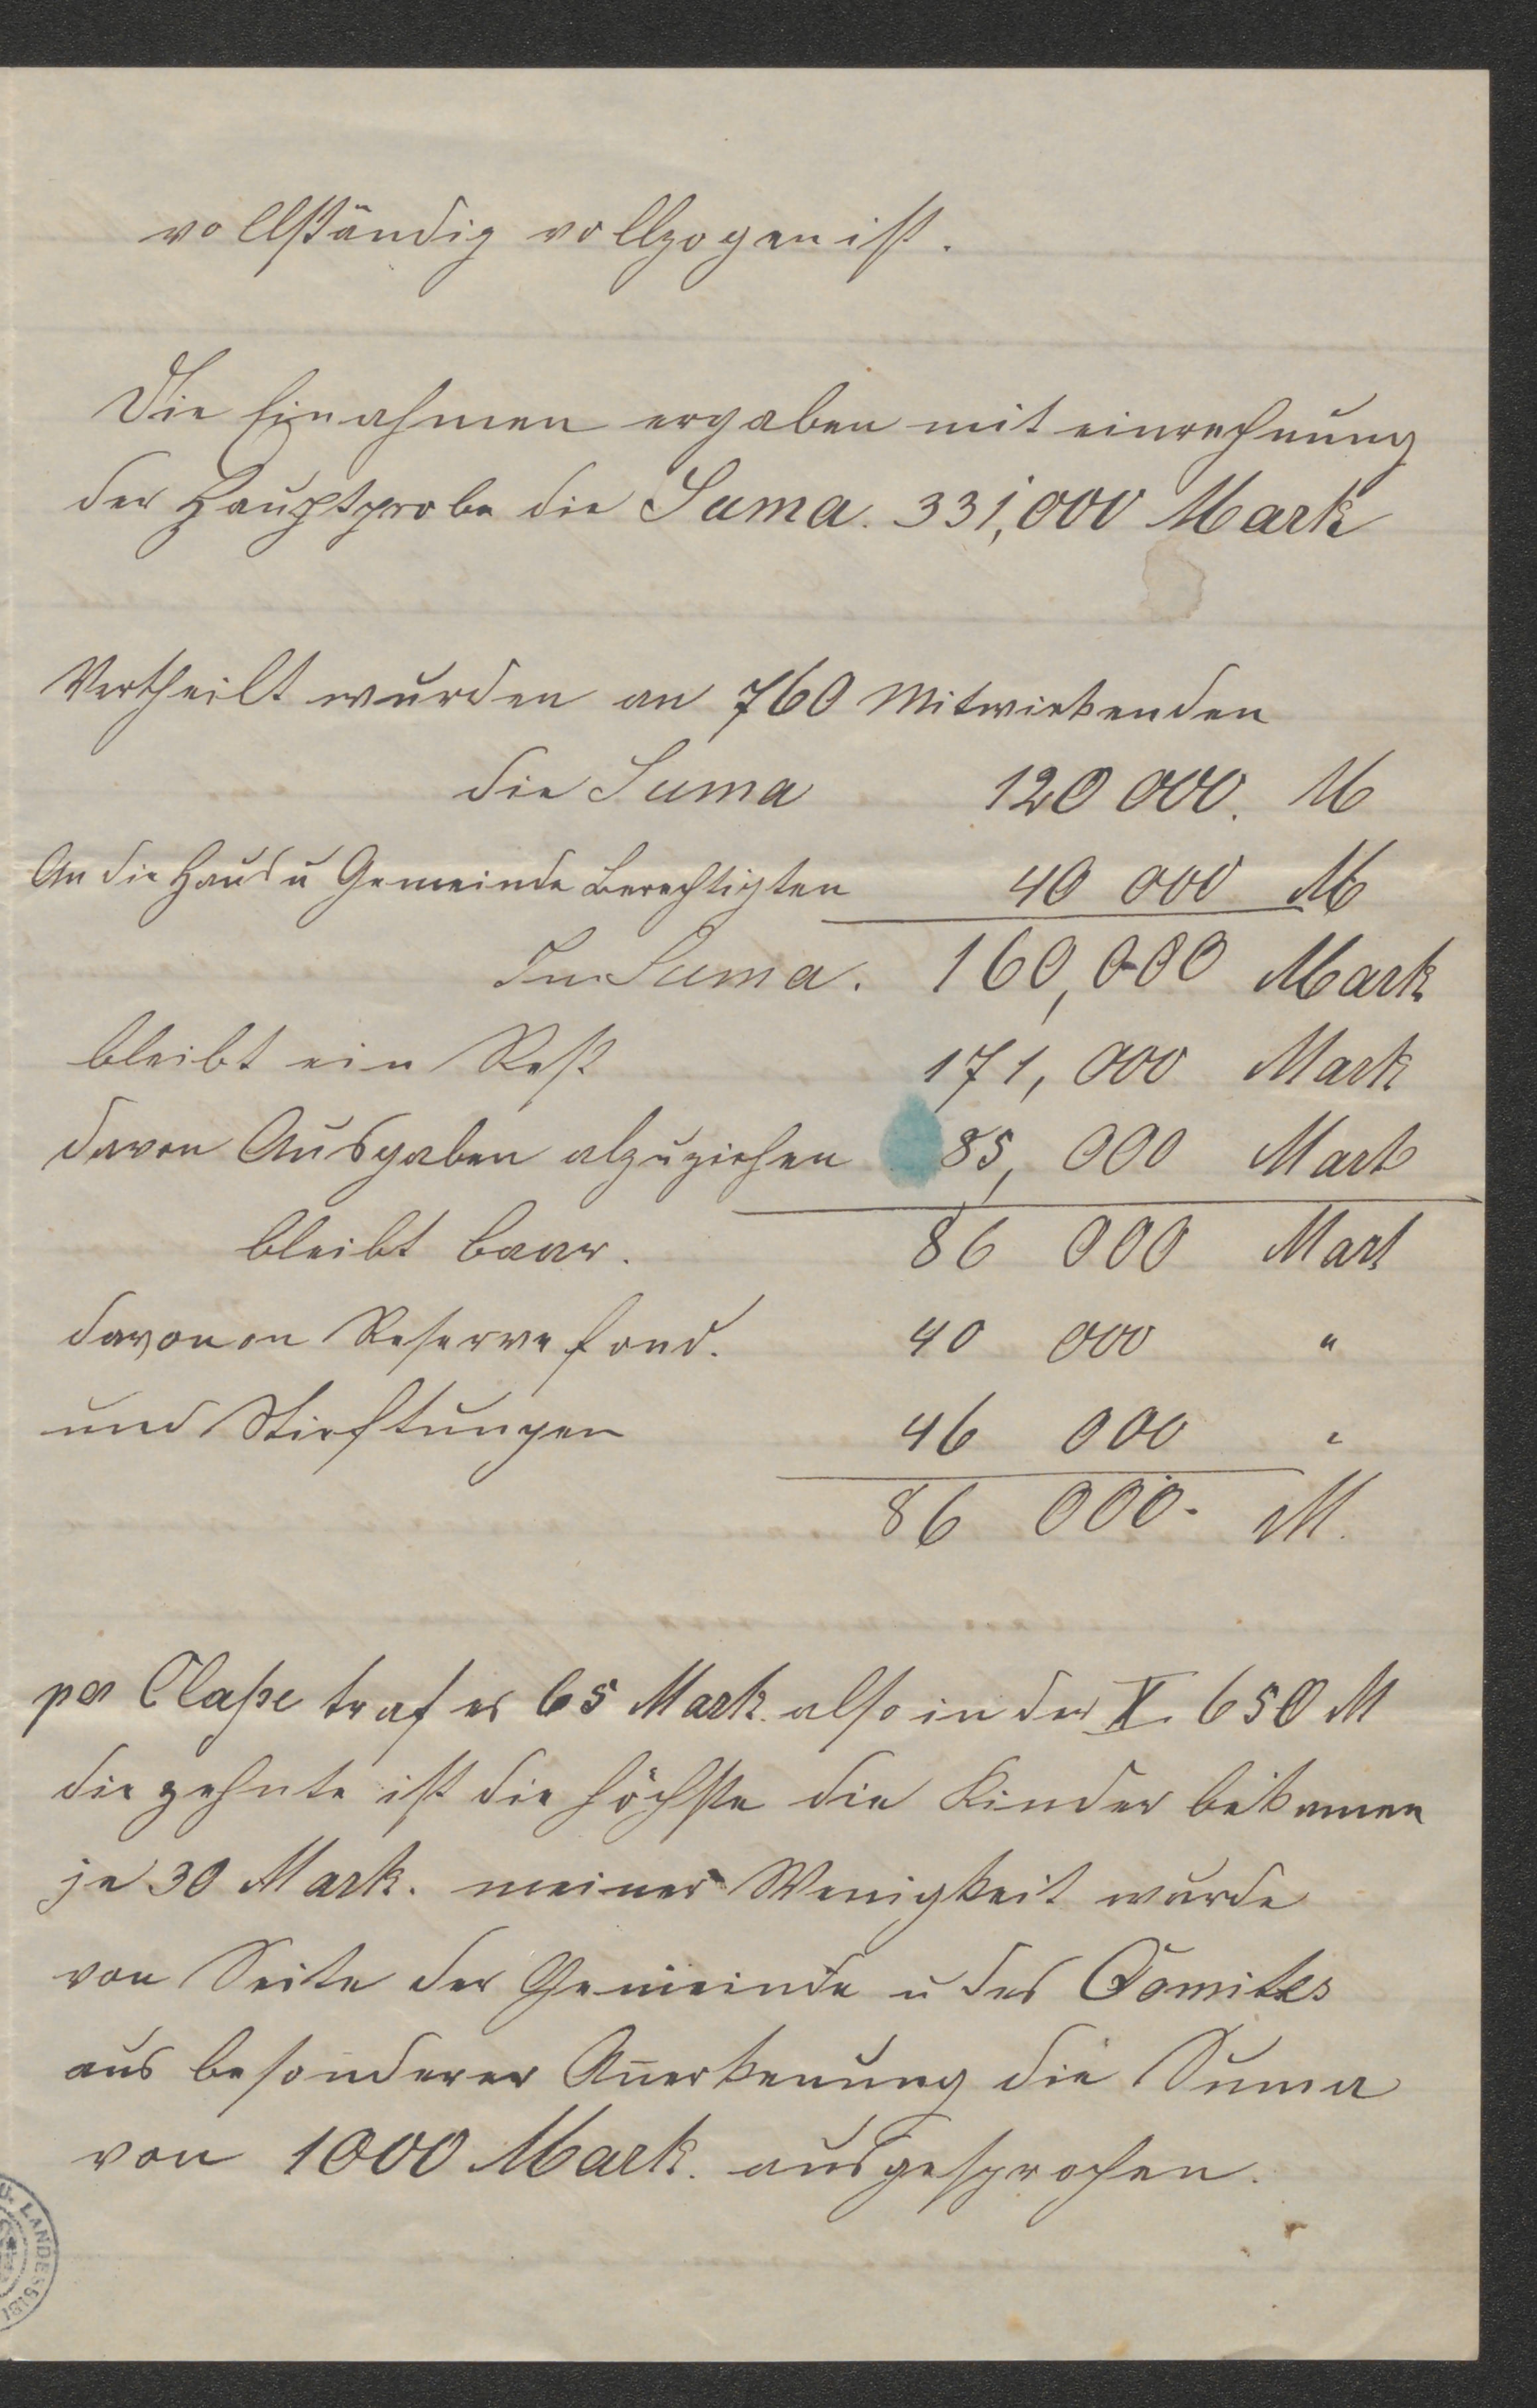 vollständig vollzogen ist.
Die Einahmen ergaben mit einrechnung
der Hauptprobe die Suma. 331,000 Mark
Vertheilt wurden an 760 Mitwirkenden
die Suma 120 000. M
An die Haus u Gemeinde Berechtigten 40 000 M
In Suma. 160,000 Mark
bleibt ein Rest 171,000 Mark
davon Ausgaben abzuziehen 85,000 Mark
bleibt baar. 86 000 Mark
davon on Reservefond. 40 000 "
und Stieftungen 46 000 "
86 000. M.
per Claße traf es 65 Mark. also in der X. 650 M
die zehnte ist die höchste die Kinder bekamen
je 30 Mark. meiner Wenigkeit wurde
von Seite der Gemeinde u des Comites
aus besonderer Anerkenung die Suma
von 1000 Mark. ausgesprochen.
U. LANDESBIBL